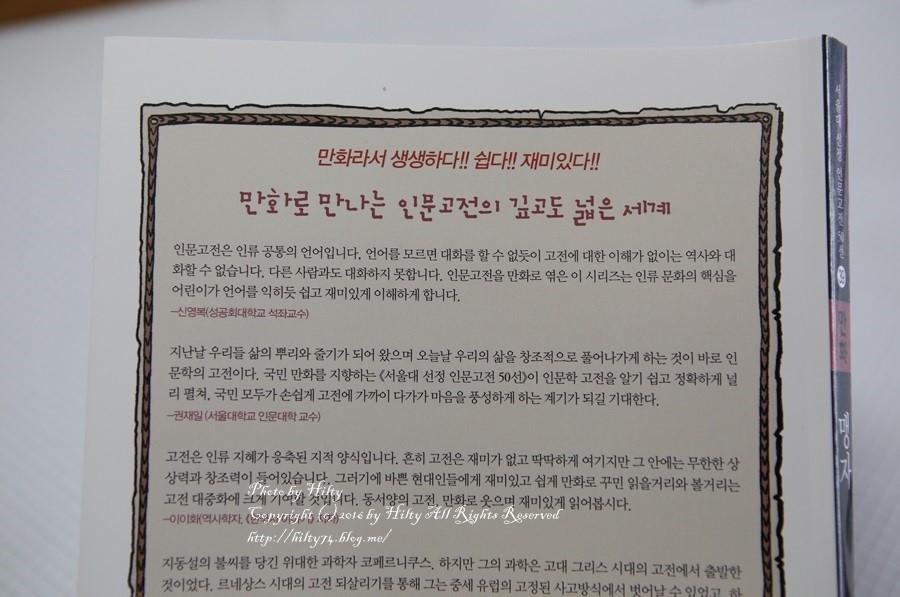 만화라서 생생하다!! 쉽다!! 재미있다!!
만화로 만나는 인문고전의 깊고도 넓은 세계
인문고전은 인류 공통의 언어입니다. 언어를 모르면 대화를 할 수 없듯이 고전에 대한 이해가 없이는 역사와 대
화할 수 없습니다. 다른 사람과도 대화하지 못합니다. 인문고전을 만화로 엮은 이 시리즈는 인류 문화의 핵심을
어린이가 언어를 익히듯 쉽고 재미있게 이해하게 합니다.
–신영복(성공회대학교 석좌교수)
지난날 우리들 삶의 뿌리와 줄기가 되어 왔으며 오늘날 우리의 삶을 창조적으로 풀어나가게 하는 것이 바로 인
문학의 고전이다. 국민 만화를 지향하는 《서울대 선정 인문고전 50선》이 인문학 고전을 알기 쉽고 정확하게 널
리 펼쳐, 국민 모두가 손쉽게 고전에 가까이 다가가 마음을 풍성하게 하는 계기가 되길 기대한다.
–권재일 (서울대학교 인문대학 교수)
고전은 인류 지혜가 응축된 지적 양식입니다. 흔히 고전은 재미가 없고 딱딱하게 여기지만 그 안에는 무한한 상
상력과 창조력이 들어있습니다. 그러기에 바쁜 현대인들에게 재미있고 쉽게 만화로 꾸민 읽을거리와 볼거리는
고전 대중화에 크게 기여할 것입니다. 동서양의 고전, 만화로 웃으며 재미있게 읽어봅시다.
–이이화(역사학자,
지동설의 불씨를 당긴 위대한 과학자 코페르니쿠스. 하지만 그의 과학은 고대 그리스 시대의 고전에서 출발한
것이었다. 르네상스 시대의 고전 되살리기를 통해 그는 중세 유럽의 고정된 사고방식에서 벗어날 수 있었고, 하
Photo by Hilty
Copyright (c) 2016 by Hilty All Rights Reserved
http://hilty74.blog.me/
서울대 선정 인문고전 50선
만화
맹자